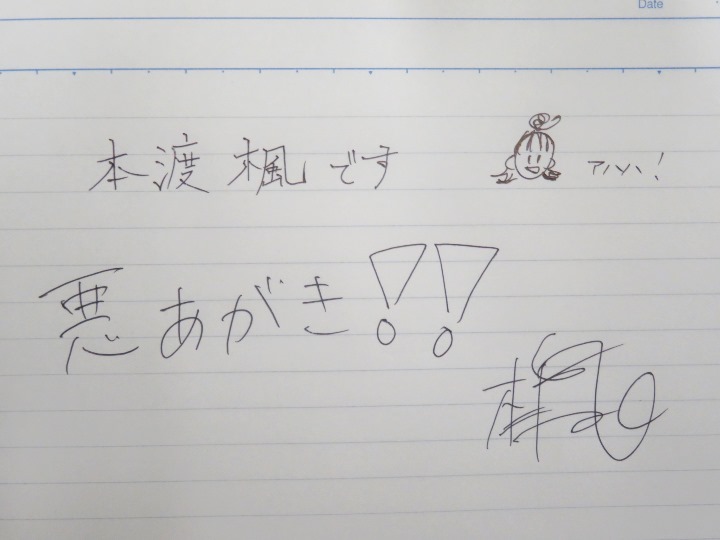 Date
本渡楓です
アハハ!
悪あがき!!